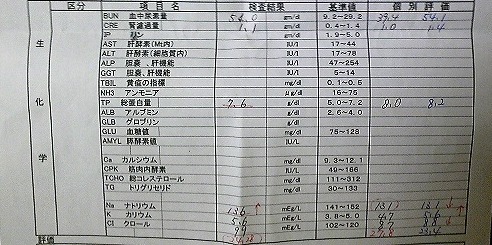 区分 項目名 検査結果 基準値 個別評価
生化学
BUN 血中尿素量 54.0 g/dl 9.2~29.2 39.4 54.1
CRE 腎濾過量 1.1 g/dl 0.4~1.4 1.0 1.4
IP リン g/dl 1.9~5.0
AST 肝酵素(Mt内) IU/l 17~44
ALT 肝酵素(細胞質内) IU/l 17~78
ALP 胆嚢、肝機能 IU/l 47~254
GGT 胆嚢、肝機能 IU/l 5~14
TBIL 黄疸の指標 mg/dl 0.1~0.5
NH3 アンモニア μg/dl 16~75
TP 総蛋白量 7.6 g/dl 5.0~7.2 8.0 8.2
ALB アルブミン g/dl 2.6~4.0
GLB グロブリン g/dl
GLU 血糖値 mg/dl 75~128
AMYL 膵酵素値 IU/L
Ca カルシウム mg/dl 9.3~12.1
CPK 筋肉内酵素 IU/l 49~166
TCHO 総コレステロール mg/dl 111~312
TG トリグリセリド mg/dl 30~133
Na ナトリウム 136 ↑ mEg/L 141~152 131 131 ↓
K カリウム 5.6 mEg/L 3.8~5.0 4.7 5.6
Cl クロール 99 mEg/L 102~120 87 88 ↓
27.8 23.4
評価